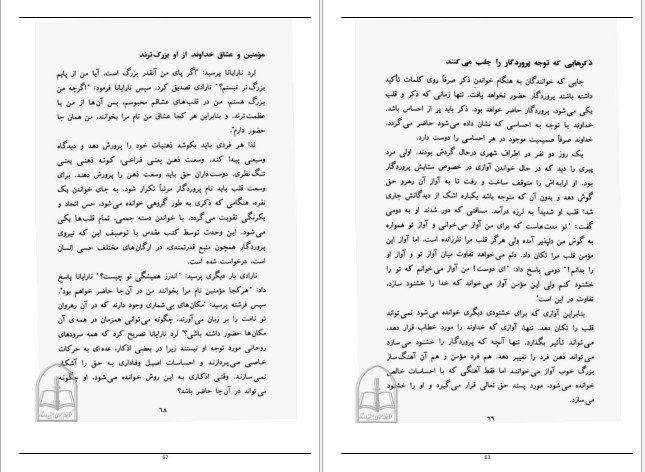 مؤمنین و عشاق خداوند از او بزرگ‌ترند
لرد نارایانا پرسید: "اگر پای من آنقدر بزرگ است، آیا من از پایم
بزرگ‌تر نیستم؟" نارادای تصدیق کرد. سپس نارایانا فرمود: "اگرچه من
بزرگ هستم، من در قلب‌های عشاقم محبوسم، پس آن‌ها از من با
عظمت‌ترند. و بنابراین هر کجا عشاق من نام مرا بخوانند، من همان جا
حضور دارم".
لذا هر فردی باید بکوشد ذهنیات خود را پرورش دهد و دیدگاه
وسیعی پیدا کند. وسعت ذهن یعنی فراخی، کوته ذهنی یعنی
تنگ‌نظری. دوست‌داران حق باید وسعت ذهن را پرورش دهند. برای
وسعت قلب باید نام پروردگار مرتباً تکرار شود. به جای خواندن یک
نفره، هنگامی که ذکری به طور گروهی خوانده می‌شود، حس اتحاد و
یکرنگی تقویت می‌گردد. با خواندن دسته جمعی، تمام قلب‌ها یکی
می‌شود. این وحدت توسط کتب مقدس با توصیف این که نیروی
پروردگار همچون منبع قدرتمندی، در ارگان‌های مختلف حسی انسان
است، درخواست شده است.
نارادی بار دیگری پرسید: "اندرز همیشگی تو چیست؟" نارایانا پاسخ
داد: "هرکجا مؤمنین نام مرا بخوانند من در آن‌جا حاضر خواهم بود".
سپس فرشته پرسید: "مکان‌های بی‌شماری وجود دارند که در آن رهروان
تو نامت را بر زبان می‌آورند، چگونه می‌توانی همزمان در همه‌ی آن
مکان‌ها حضور داشته باشی؟" لرد نارایانا تصریح کرد که همه سرودهای
روحانی مورد توجه او نیستند زیرا در بعضی اذکار، عده‌ای به حرکات
خاصی می‌پردازند و احساسات اصیل وفاداری به حق را آشکار
نمی‌سازند. وقتی اذکاری به این روش خوانده می‌شود، او چگونه
می‌تواند در آن‌جا حاضر باشد؟
۶۸
62
ذکرهایی که توجه پروردگار را جلب می‌کنند
جایی که خوانندگان به هنگام خواندن ذکر صرفاً روی کلمات تأکید
داشته باشند پروردگار حضور نخواهد یافت. تنها زمانی که ذکر و قلب
یکی می‌شود، پروردگار حاضر خواهد بود. ذکر باید پر از احساس باشد.
خداوند با توجه به احساسی که نشان داده می‌شود حاضر می‌گردد.
خداوند صرفاً صمیمیت موجود در هر احساسی را دوست دارد.
یک روز دو نفر در اطراف شهری درحال گردش بودند. اولی مرد
پیری را دید که در حال خواندن آوازی در خصوص ستایش پروردگار
بود. او ارابه‌اش را متوقف ساخت و رفت تا به آواز آن رهرو حق
گوش دهد و بدون آن که متوجه باشد یکباره اشک از دیدگانش جاری
شد؛ قلب او شدیداً به لرزه درآمد. مسافتی که دور شدند او به دومی
گفت: "تو مدت‌هاست که برای من آواز می‌خوانی و آواز تو همواره
به گوش من دلپذیر آمده ولی هرگز قلب مرا نلرزانده است، اما آواز این
مؤمن قلب مرا تکان داد. دلم می‌خواهد تفاوت میان آواز تو و آواز او
را بدانم!" دومی پاسخ داد: "ای دوست! من آواز می‌خوانم که تو را
خشنود کنم ولی این مؤمن آواز می‌خواند که خدا را خشنود سازد،
تفاوت در این است".
بنابراین آوازی که برای خشنودی دیگری خوانده می‌شود نمی‌تواند
قلب را تکان دهد. تنها، آوازی که خداوند را مورد خطاب قرار دهد،
می‌تواند تأثیر بگذارد. تنها آنچه که پروردگار را خشنود می‌سازد
می‌تواند ذهن فرد را تغییر دهد. هم فرد مؤمن و هم آن آهنگ ساز
بزرگ خوب آواز می‌خوانند اما فقط آهنگی که با احساسات خالص
خوانده می‌شود، مورد پسند حق تعالی قرار می‌گیرد و او را خشنود
می‌سازد.
۶۹
63